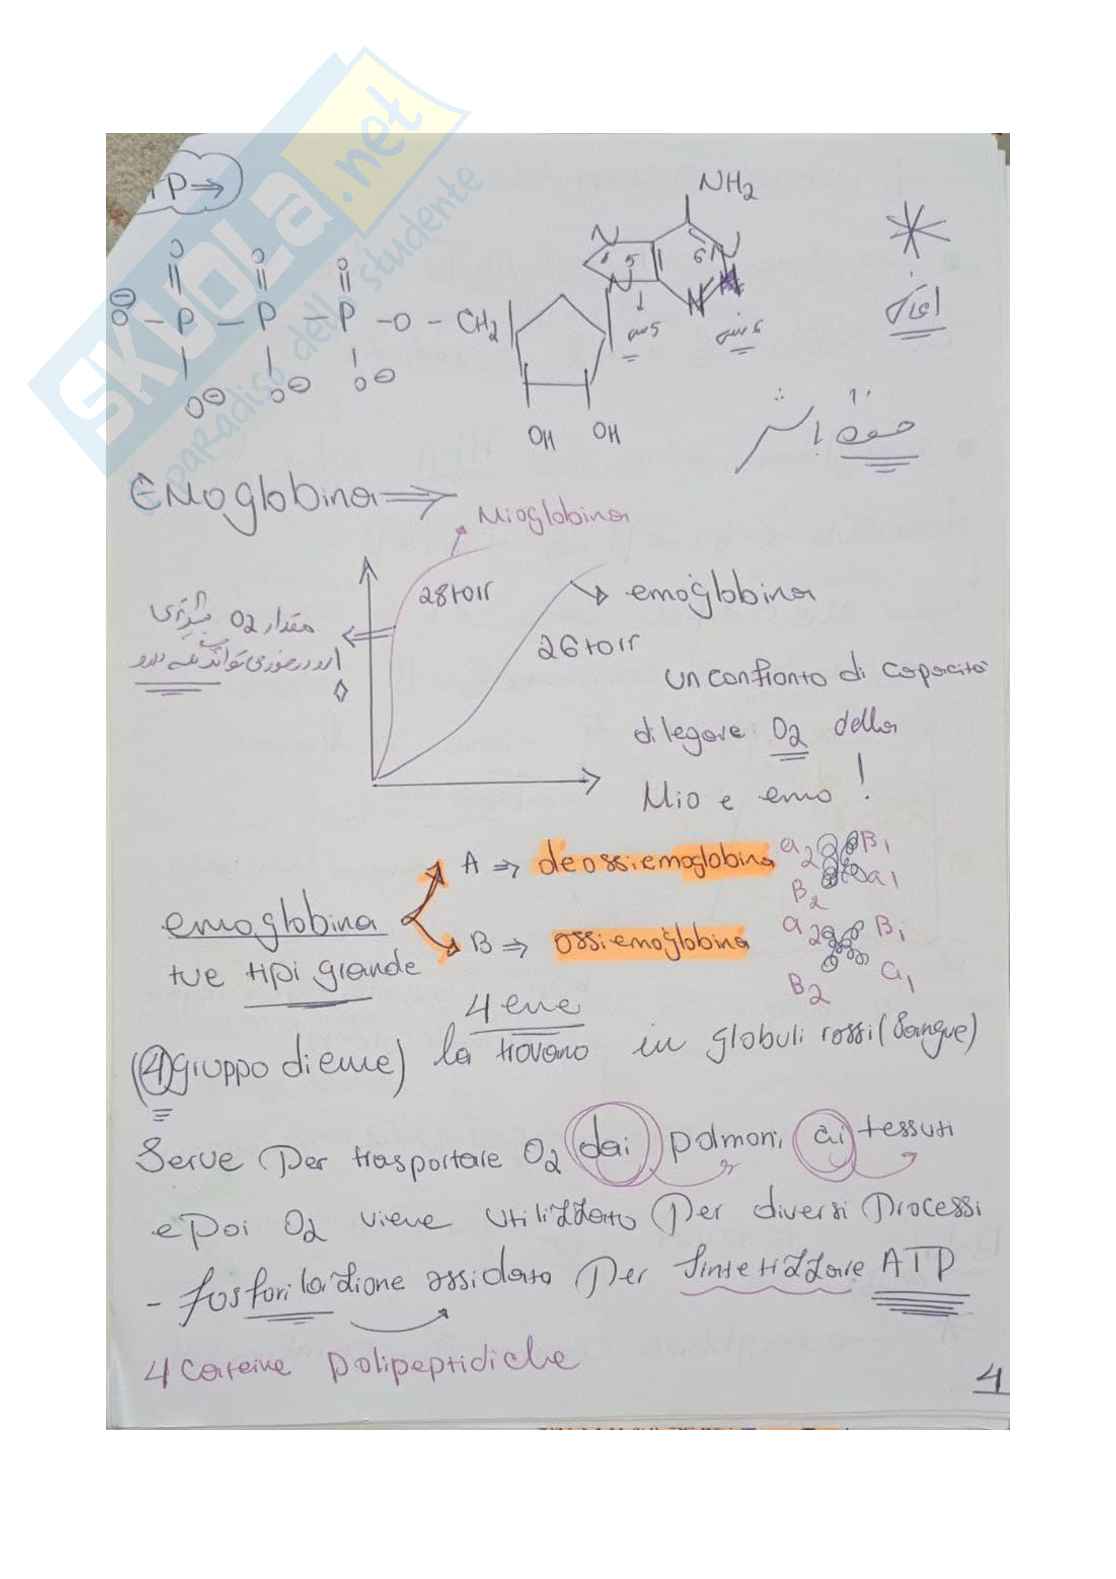 SKUOLA.net
paradiso dello studente
TP⇒
NH2
O O O
N N
5 6
⊖O – P – P – P – O – CH2
N N
O⊖ O⊖ O⊖
OH OH
Emoglobina ⇒
Mioglobina
28 torr
emoglobina
مقدار O2 بیشتری
26 torr
un confronto di capacità
di legare O2 della
Mio e emo !
A ⇒ deossiemoglobina
a2 B1
B2 a1
emoglobina
B ⇒ ossiemoglobina
a2 B1
B2 a1
tue tipi grande
4 eme
(4 gruppo di eme) la trovano in globuli rossi (Sangue)
Serve Per trasportare O2 dai polmoni ai tessuti
e Poi O2 viene utilizzato Per diversi Processi
- fosforilazione ossidato Per Sintetizzare ATP
4 cateine polipeptidiche
4